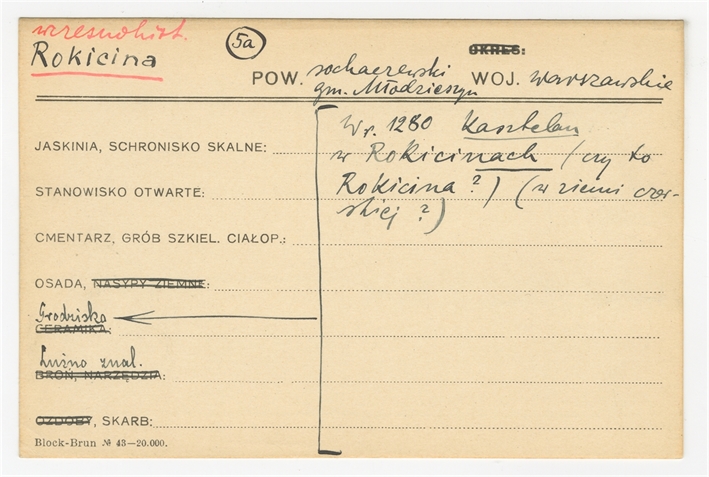 wczesnohist.
Rokicina
5a
OKRES:
POW. sochaczewski WOJ. warszawskie
gm. Młodzieszyn
W r. 1280 Kasztelan
w Rokicinach (czy to
Rokicina?) (w ziemi czer-
skiej?)
JASKINIA, SCHRONISKO SKALNE:
STANOWISKO OTWARTE:
CMENTARZ, GRÓB SZKIEL. CIAŁOP.:
OSADA, NASYPY ZIEMNE:
Grodzisko
CERAMIKA:
Luźno znal.
BROŃ, NARZĘDZIA:
OZDOBY, SKARB:
Block-Brun № 43—20.000.